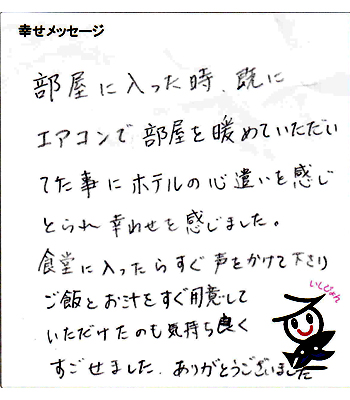 幸せメッセージ
部屋に入った時、既に
エアコンで部屋を暖めていただい
てた事にホテルの心遣いを感じ
とられ幸わせを感じました。
食堂に入ったらすぐ声をかけて下さり
ご飯とお汁をすぐ用意して
いただけたのも気持ち良く
すごせました。ありがとうございました